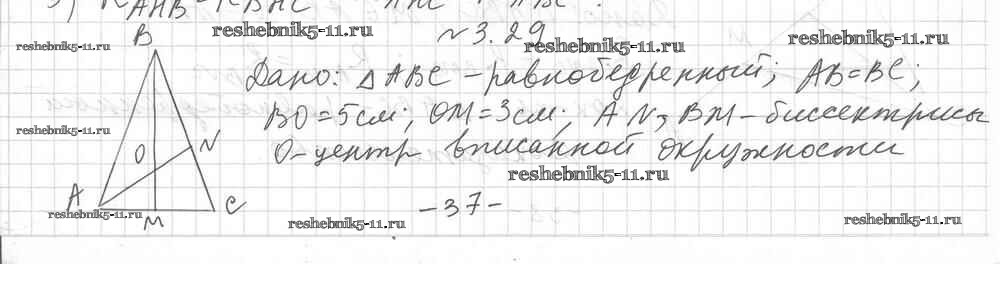 reshebnik5-11.ru
reshebnik5-11.ru
N 3.29
reshebnik5-11.ru
reshebnik5-11.ru
B
Дано: △ABC - равнобедренный; AB=BC;
BO=5см; OM=3см; AN, BM - биссектрисы
reshebnik5-11.ru
O N
O-центр вписанной окружности
reshebnik5-11.ru
A C
reshebnik5-11.ru
M
-37-
reshebnik5-11.ru
reshebnik5-11.ru